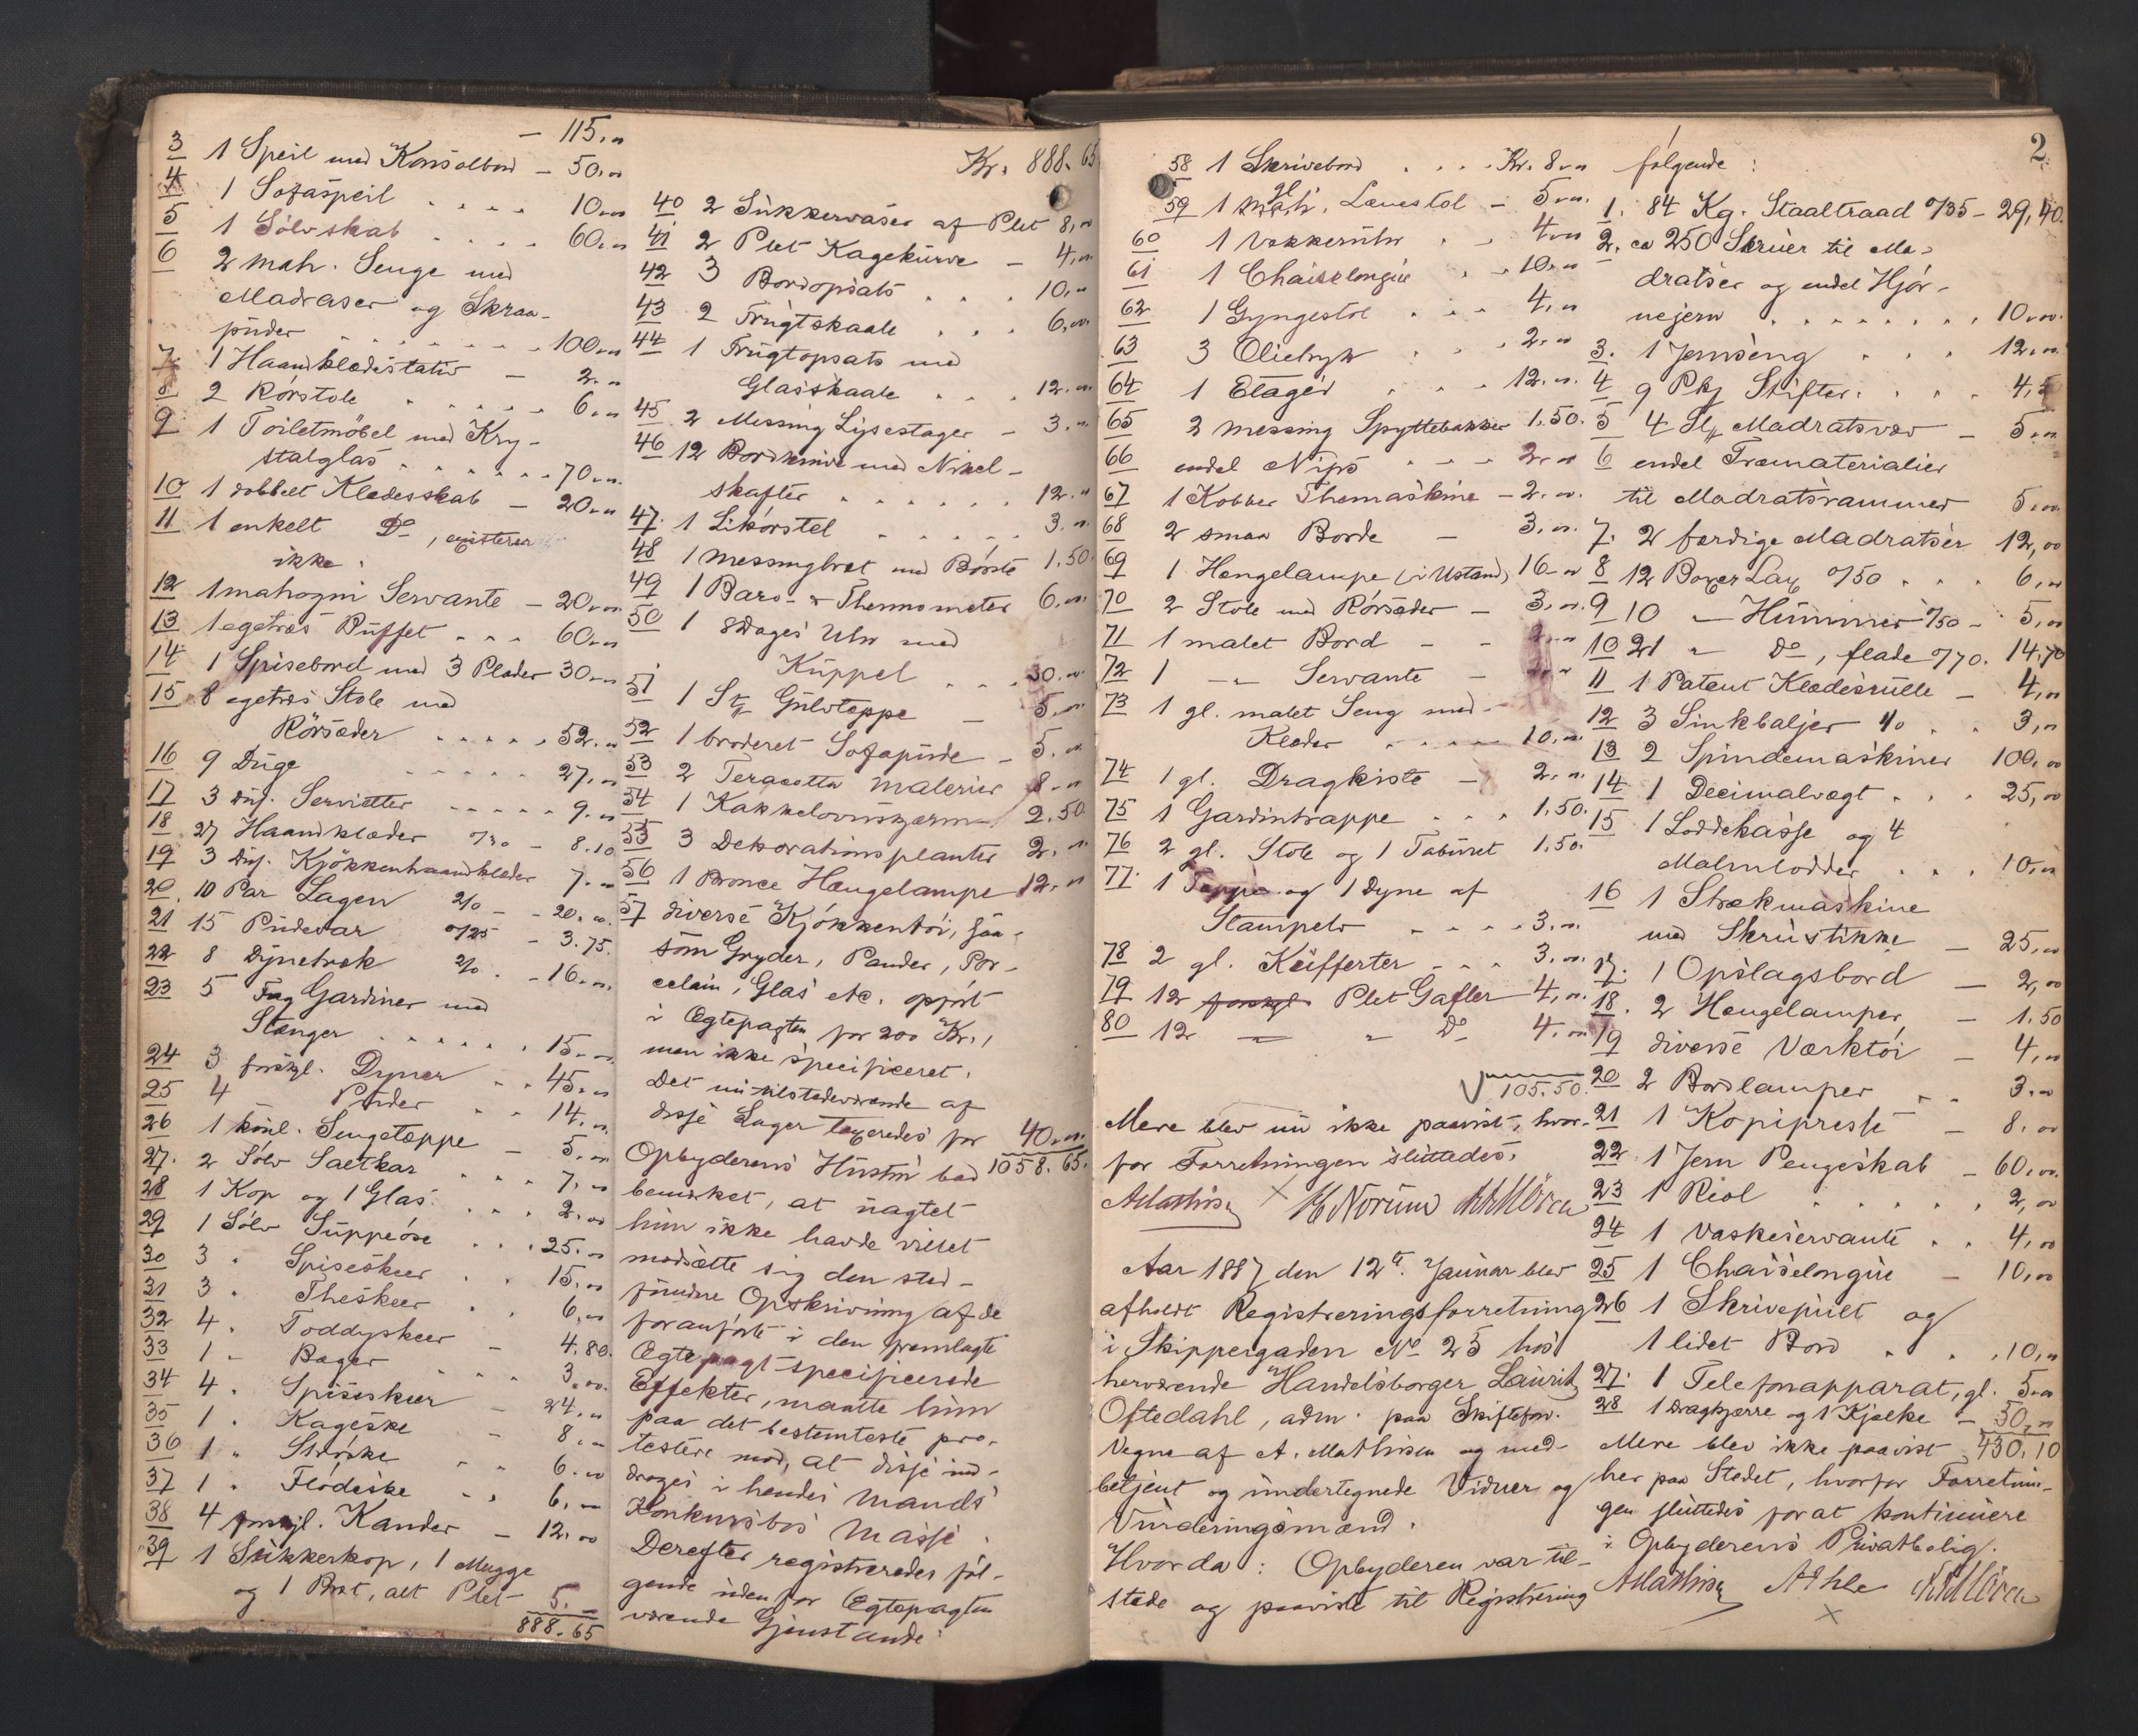 - 115."
3 1 Speil med Konsolbord - 50."
4 1 Sofaspeil . . . . 10."
5 1 Sölvskab . . . . 60."
6 2 mah. Senge med
Madraser og Skraa-
puder . . . . . . . 100."
7 1 Haandklædestativ - 2."
8 2 Rörstole . . . . . 6."
9 1 Toiletmöbel med Kry-
stalglas . . . . . . 70."
10 1 dobbelt Klædesskab - 20."
11 1 enkelt Do, existerer
ikke.
12 1 mahogni Servante - 20."
13 1 egetræs Buffet . . . 60."
14 1 Spisebord med 3 Plader 30."
15 8 egetræs Stole med
Rörsæder . . . . . 52."
16 9 Duge . . . . . 27."
17 3 dus. Servietter - - - - - 9."
18 27 Haandklæder °/30 - 8.10
19 3 dus. Kjökkenhaandklæder 7."
20 10 Par Lagen 2/0 - - 20.00
21 15 Pudevar °/25 - 3.75.
22 8 Dynetræk 2/0 . - 16."
23 5 Fag Gardiner med
Stænger . . . . . . 15."
24 3 forskjl. Dyner . . 45."
25 4 Puder . . 14."
26 1 Sengetæppe - 5."
27. 2 Sölv Saltkar . . . 7."
28 1 Kop og 1 Glas . . . 2.00
29 1 Sölv Suppeöse . . . 25."
30 3 " Spiseskeer . . 15."
31 3 " Theskeer . . 6."
32 4 " Toddyskeer - 4.80.
33 1 " Bæger . . . 3.00.
34 4 " Spiseskeer - 24."
35 1 " Kageske - 8."
36 1 " Ströske . . 6.00
37 1 " Flödeske . . 6."
38 4 forskjl. Kander - 12.00
39 1 Sukkerkop, 1 Mugge
og 1 Bret, alt Plet - 5."
888.65
Kr. 888.65
40 2 Sukkervaser af Plet 8."
41 2 Plet Kagekurve - 4."
42 3 Bordopsats . . . 10."
43 2 Frugtskaale . . . 6.00
44 1 Frugtopsats med
Glasskaale . . . 12."
45 2 Messing Lysestager - 3."
46 12 Bordknive med Nikel-
skafter . . . . . . 12."
47. 1 Likörstel . . . . . 3."
48 1 Messingbret med Börste 1.50.
49 1 Baro- & Thermometer 6."
50 1 8 Dages Uhr med
Kuppel . . . 30."
51 1 Stk Gulvtæppe - 5."
52 1 broderet Sofapude - 5."
53 2 Teracotta Malerier 8."
54 1 Kakkelovnsskjærm - 2.50
55 3 Dekorationsplanter 2."
56 1 Bronce Hængelampe 12."
57 diverse Kjökkentöi, saa-
som Gryder, Pander, Por-
celain, Glas etc. opfört
i Ægtepagten for 200 Kr.,
men ikke specificeret.
Det nu tilstedeværende af
disse Sager taxeredes for 40."
1058.65.
Opbyderens Hustru bad
bemærket, at uagtet
hun ikke havde villet
modsætte sig den sted-
fundne Opskrivning af de
foranförte i den fremlagte
Ægtepagt specificerede
Effekter, maatte hun
paa det bestemteste pro-
testere mod, at disse ind-
drages i hendes Mands
Konkursbos Masse.
Derefter registreredes föl-
gende udenfor Ægtepagten
værende Gjenstande:
58 1 Skrivebord . . . Kr. 8."
59 1 gl. mah. Lænestol - 5."
60 1 Vækkeruhr . . 4."
61 1 Chaiselongue . . 10."
62 1 Gyngestol . . . 4."
63 3 Olietryk . . . 2."
64 1 Etagèr . . . 12."
65 2 Messing Spyttebakker 1.50.
66 endel Nips - - - 2."
67 1 Kobber Themaskine - 2."
68 2 smaa Borde - 3."
69 1 Hængelampe (i Ustand) 16."
70 2 Stole med Rörsæder - 3."
71 1 malet Bord - - 2."
72 1 -"- Servante -
73 1 gl. malet Seng med
Klæder . . . . . 10."
74 1 gl. Dragkiste - 2."
75 1 Gardintrappe . . . 1.50.
76 2 gl. Stole og 1 Taburet 1.50.
77. 1 Tæppe og 1 Dyne af
Stampelr . . . . 3."
78 2 gl. Kufferter . . . 3."
79 12 forskjl. Plet Gafler 4."
80 12 - " Do 4."
105.50.
Mere blev nu ikke paavist, hvor-
for Forretningen sluttedes.
AMathisen H Norum
Aar 1887 den 12te Januar blev
afholdt Registreringsforretning
i Skippergaden No 25 hos
herværende Handelsborger Lauritz
Oftedahl, adm. paa Skiftefor.
Vegne af A. Mathisen og med-
betjent og undertegnede Vidner og
Vurderingsmænd.
Hvorda: Opbyderen var til-
stede og paaviste til Registrering
2.
fölgende:
1. 84 Kg. Staaltraad °/35 - 29,40.
2. ca 250 Skruer til Ma-
dratser og endel Hjör-
nejern . . . . . . . . 10.00.
3. 1 Jernseng . . . 12."
4 9 Pkj Stifter . . . 4,5
5 4 Stk Madratsvær - 5."
6 endel Træmaterialier
til Madratsrammer 5.00
7. 2 færdige Madratser 12,00
8 12 Boxer Lax °/50 . . . 6."
9 10 -"- Hummer °/50 - 5."
10 21 " Do, flade °/70. 14.70
11 1 Patent Klædesrulle - 4."
12 3 Sinkbaljer 1/0 . . 3."
13 2 Spindemaskiner 100.00
14 1 Decimalvægt . . . 25,00
15 1 Loddekasse og 4
Malmlodder . . . 10."
16 1 Strækmaskine
med Skrustikke - 25.00
17. 1 Opslagsbord - 2,00
18. 2 Hængelamper - 1.50
19 diverse Værktöi - 4."
20 2 Bordlamper . . 3.00
21 1 Kopipresse - 8.00
22 1 Jern Pengeskab - 60.00.
23 1 Riol . . . . . 2,00
24 1 Vaskeservante . . 4,00
25 1 Chaiselongue - 10,00
26 1 Skrivepult og
1 lidet Bord . . . 10."
27. 1 Telefonapparat, gl. 5."
28 1 Dragkjærre og 1 Kjælke - 50."
430.10
Mere blev ikke paavist
her paa Stedet, hvorfor Forretnin-
gen sluttedes for at kontinuere
i Opbyderens Privatbolig.
AMathisen A Ihle